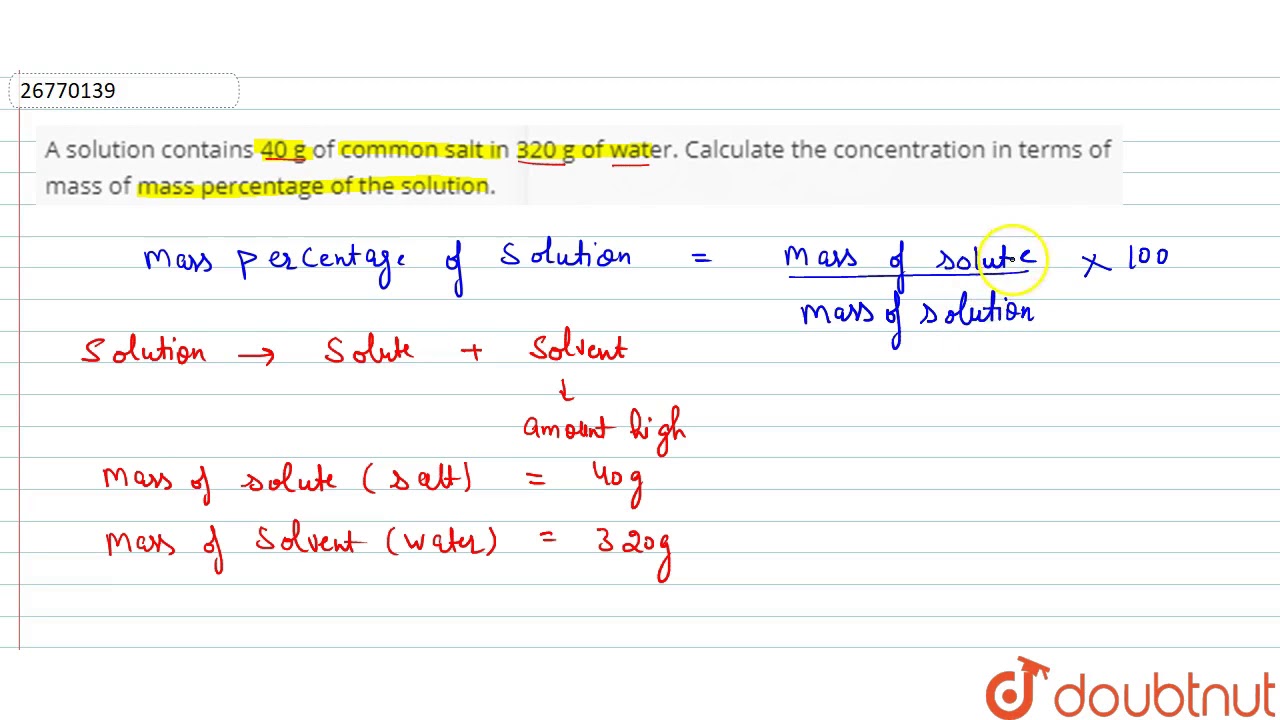 26770139
A solution contains 40 g of common salt in 320 g of water. Calculate the concentration in terms of
mass of mass percentage of the solution.
Mass percentage of solution = Mass of solute × 100
Mass of solution
Solution → Solute + Solvent
↓
amount high
Mass of solute (salt) = 40g
Mass of Solvent (water) = 320g
doubtnut